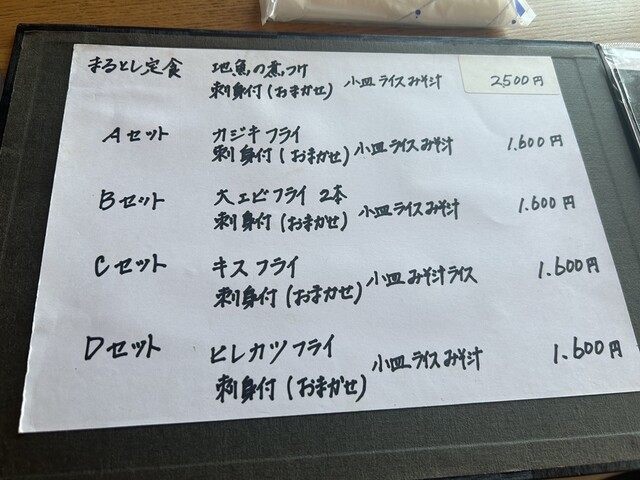 まるとし定食 地魚の煮つけ
刺身付(おまかせ) 小皿 ライス みそ汁 2500円
Aセット カジキフライ
刺身付(おまかせ) 小皿 ライス みそ汁 1.600円
Bセット 大エビフライ 2本
刺身付(おまかせ) 小皿 ライス みそ汁 1.600円
Cセット キスフライ
刺身付(おまかせ) 小皿 みそ汁 ライス 1.600円
Dセット ヒレカツフライ
刺身付(おまかせ) 小皿 ライス みそ汁 1.600円